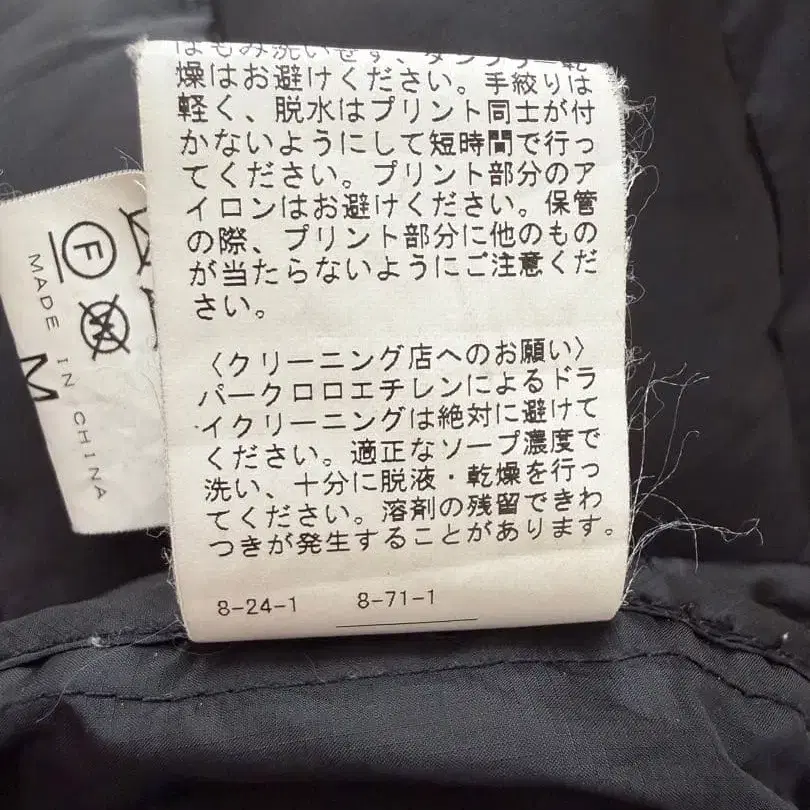 はもみ洗いせず、タンブラー乾
燥はお避けください。手絞りは
軽く、脱水はプリント同士が付
かないようにして短時間で行っ
てください。プリント部分のア
イロンはお避けください。保管
の際、プリント部分に他のもの
が当たらないようにご注意くだ
さい。
〈クリーニング店へのお願い〉
パークロロエチレンによるドラ
イクリーニングは絶対に避けて
ください。適正なソープ濃度で
洗い、十分に脱液・乾燥を行っ
てください。溶剤の残留できわ
つきが発生することがあります。
8-24-1 8-71-1
F
W
MADE IN CHINA
M